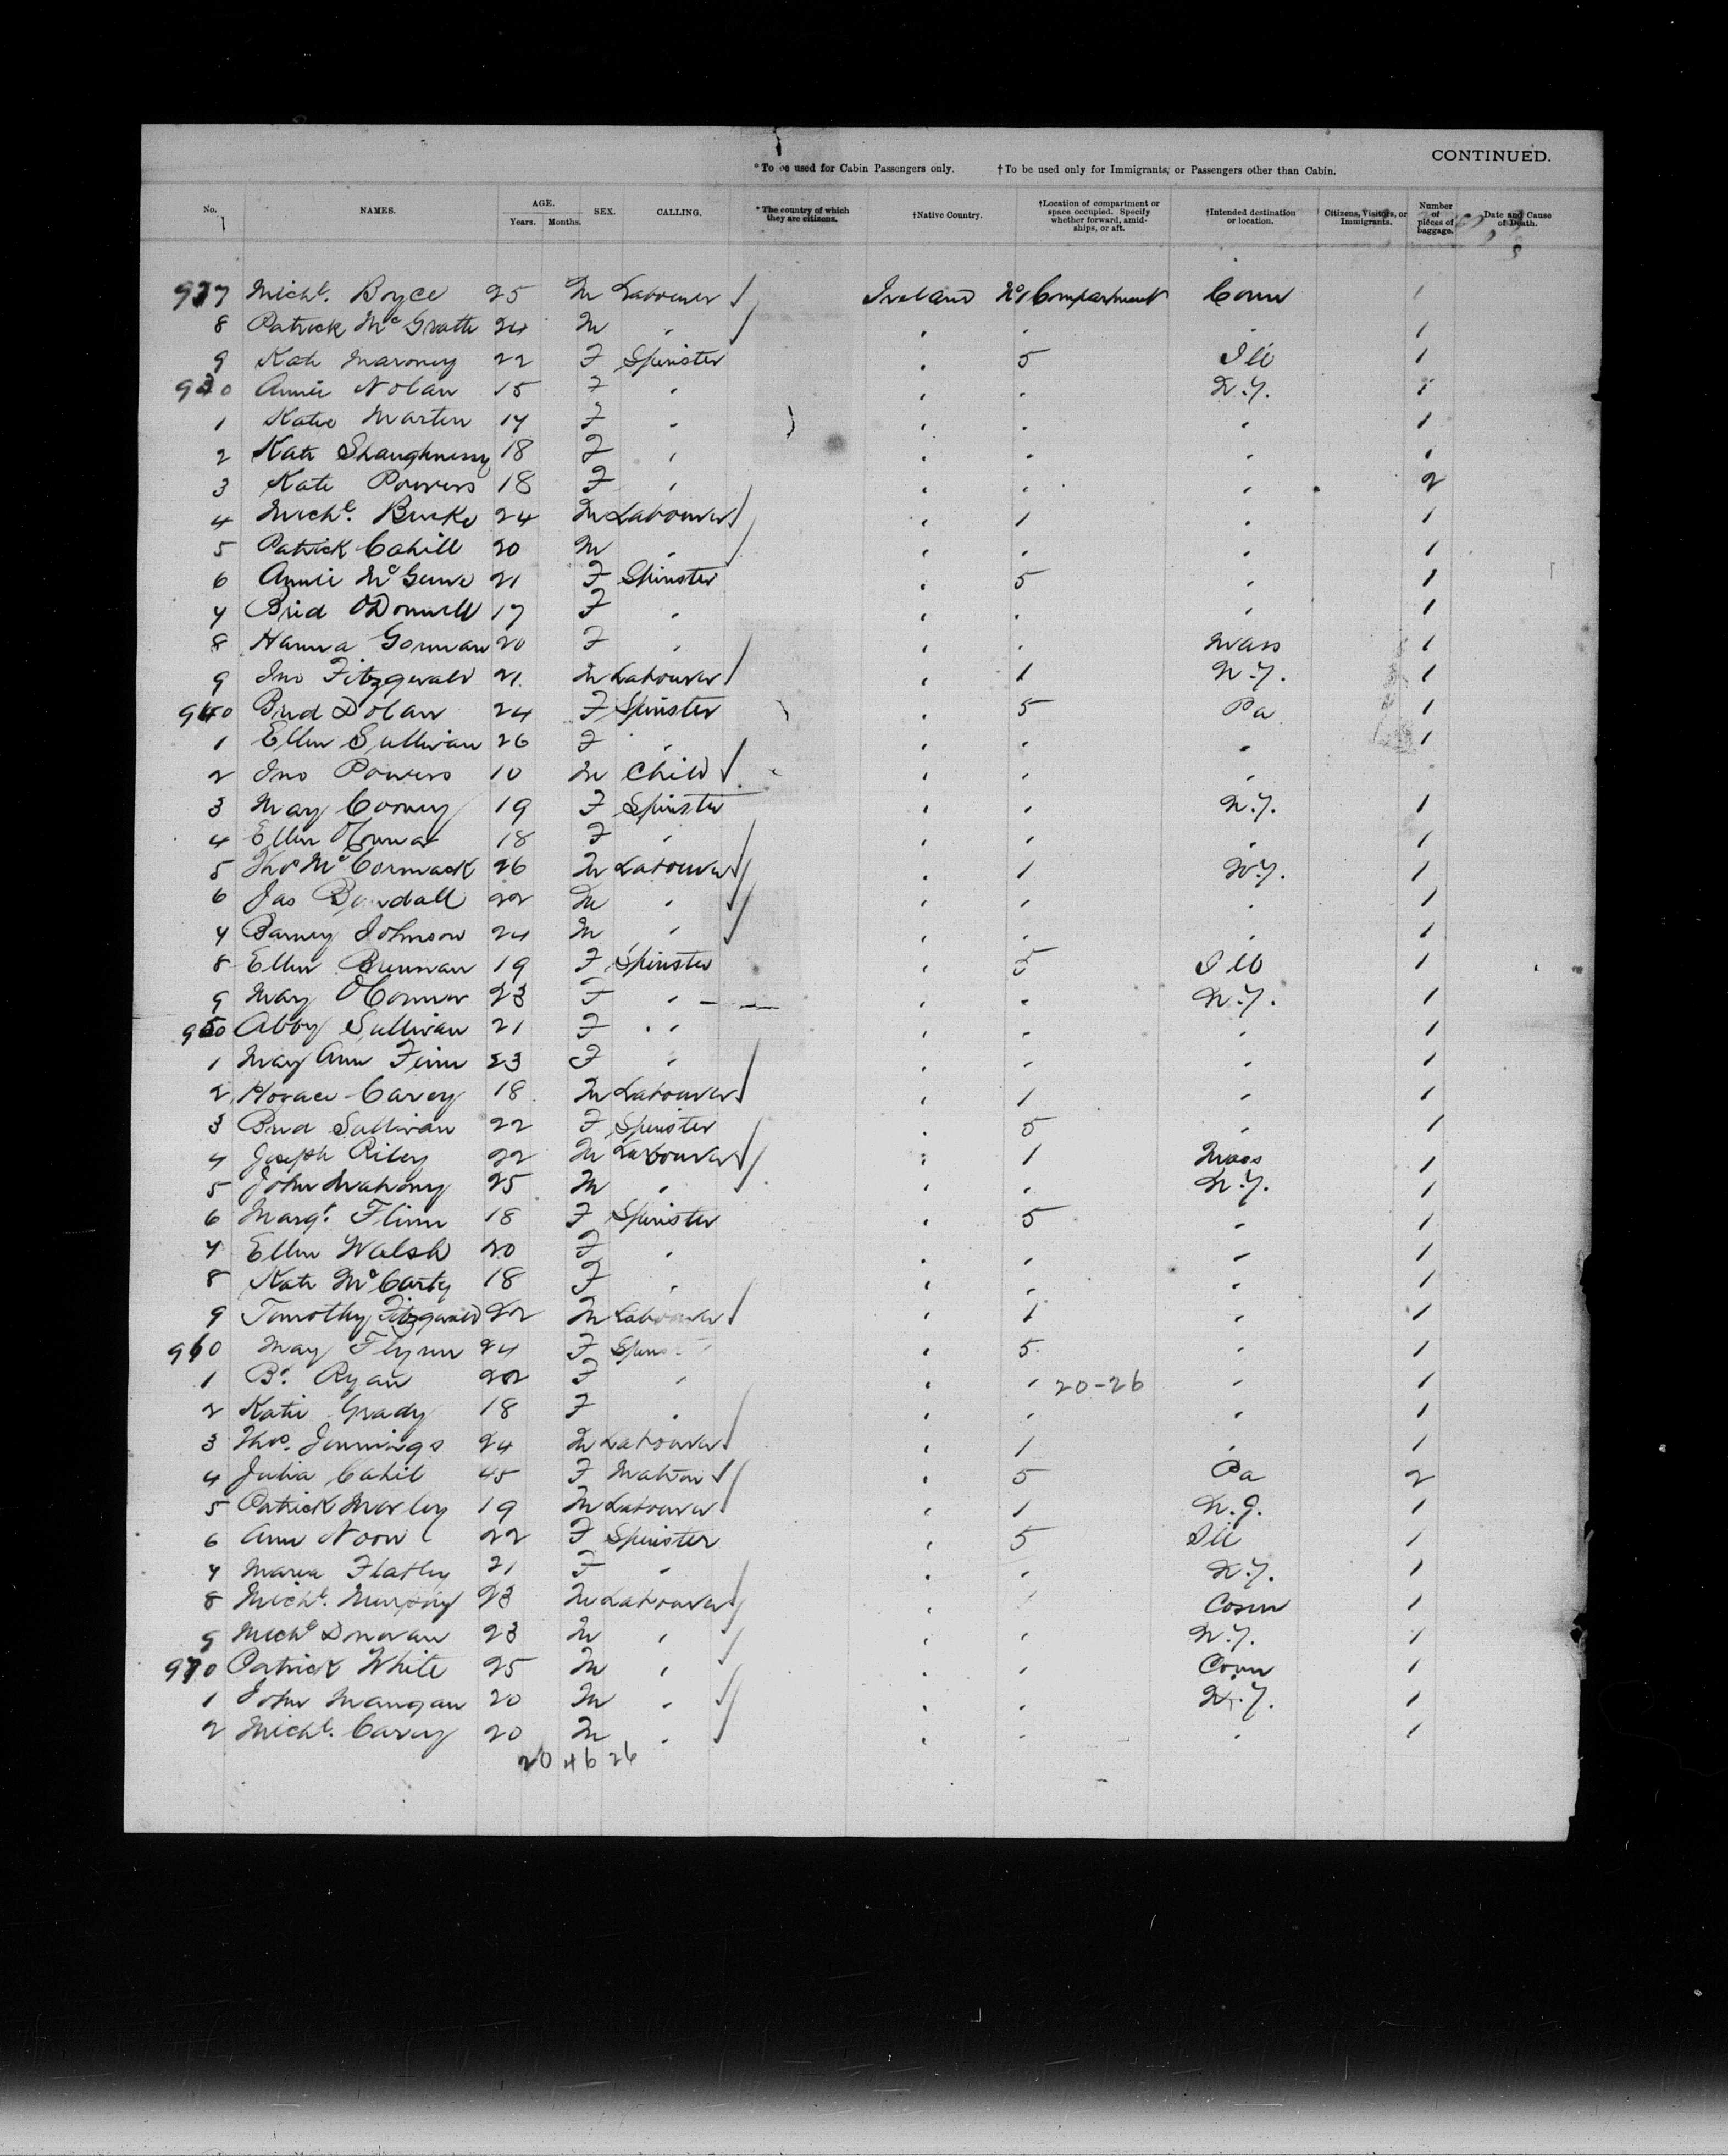 CONTINUED.
*To be used for Cabin Passengers only. †To be used only for Immigrants, or Passengers other than Cabin.
No. NAMES. AGE. Years. Months. SEX. CALLING. *The country of which they are citizens. †Native Country. †Location of compartment or space occupied. Specify whether forward, amidships, or aft. †Intended destination or location. Citizens, Visitors, or Immigrants. Number of pieces of baggage. Date and Cause of Death.
927 Michl. Boyce 25 M Labourer Ireland No 1 Compartment Conn 1
8 Patrick McGrath 24 M " " " " 1
9 Kate Maroney 22 F Spinster " 5 Ill 1
930 Annie Nolan 15 F " " " N.Y. 1
1 Katie Martin 17 F " " " " 1
2 Kate Shaughnessy 18 F " " " " 1
3 Kate Powers 18 F " " " " 2
4 Michl. Burke 24 M Labourer " 1 " 1
5 Patrick Cahill 20 M " " " " 1
6 Annie 21 F Spinster " 5 " 1
7 Brid O'Donnell 17 F " " " " 1
8 Hanna Gorman 20 F " " " Mass 1
9 Jno Fitzgerald 21 M Labourer " 1 N.Y. 1
940 Brid Dolan 24 F Spinster " 5 Pa 1
1 Ellen Sullivan 26 F " " " " 1
2 Jno Powers 10 M Child " " "
3 Mary Cooney 19 F Spinster " " N.Y. 1
4 Ellen 18 F " " " " 1
5 Thos McCormack 26 M Labourer " 1 N.Y. 1
6 Jas 22 M " " " " 1
7 Barney Johnson 24 M " " " " 1
8 Ellen Brennan 19 F Spinster " 5 Ill 1
9 Mary O'Connor 23 F " " " N.Y. 1
950 Abby Sullivan 21 F " " " " 1
1 Mary Ann Finn 23 F " " " " 1
2 Horace Carey 18 M Labourer " 1 " 1
3 Brid Sullivan 22 F Spinster " 5 " 1
4 Joseph Riley 22 M Labourer " 1 Mass 1
5 John Mahony 25 M " " " N.Y. 1
6 Margt. Flinn 18 F Spinster " 5 " 1
7 Ellen Walsh 20 F " " " " 1
8 Kate McCarty 18 F " " " " 1
9 Timothy Fitzgerald 22 M Labourer " 1 " 1
960 Mary Flynn 24 F Spinst " 5 " 1
1 Bt. Ryan 22 F " " " 20-26 " 1
2 Katie Grady 18 F " " " " 1
3 Thos. Jennings 24 M Labourer " 1 " 1
4 Julia Cahil 45 F Matron " 5 Pa 2
5 Patrick Morley 19 M Labourer " 1 N.Y. 1
6 Ann Noon 22 F Spinster " 5 Ill 1
7 Maria Flatley 21 F " " " N.Y. 1
8 Michl. Murphy 23 M Labourer " 1 Conn 1
9 Michl Donovan 23 M " " " N.Y. 1
970 Patrick White 25 M " " " Conn 1
1 John Mangan 20 M " " " N.Y. 1
2 Michl. Carey 20 M " " " " 1
20 46 26